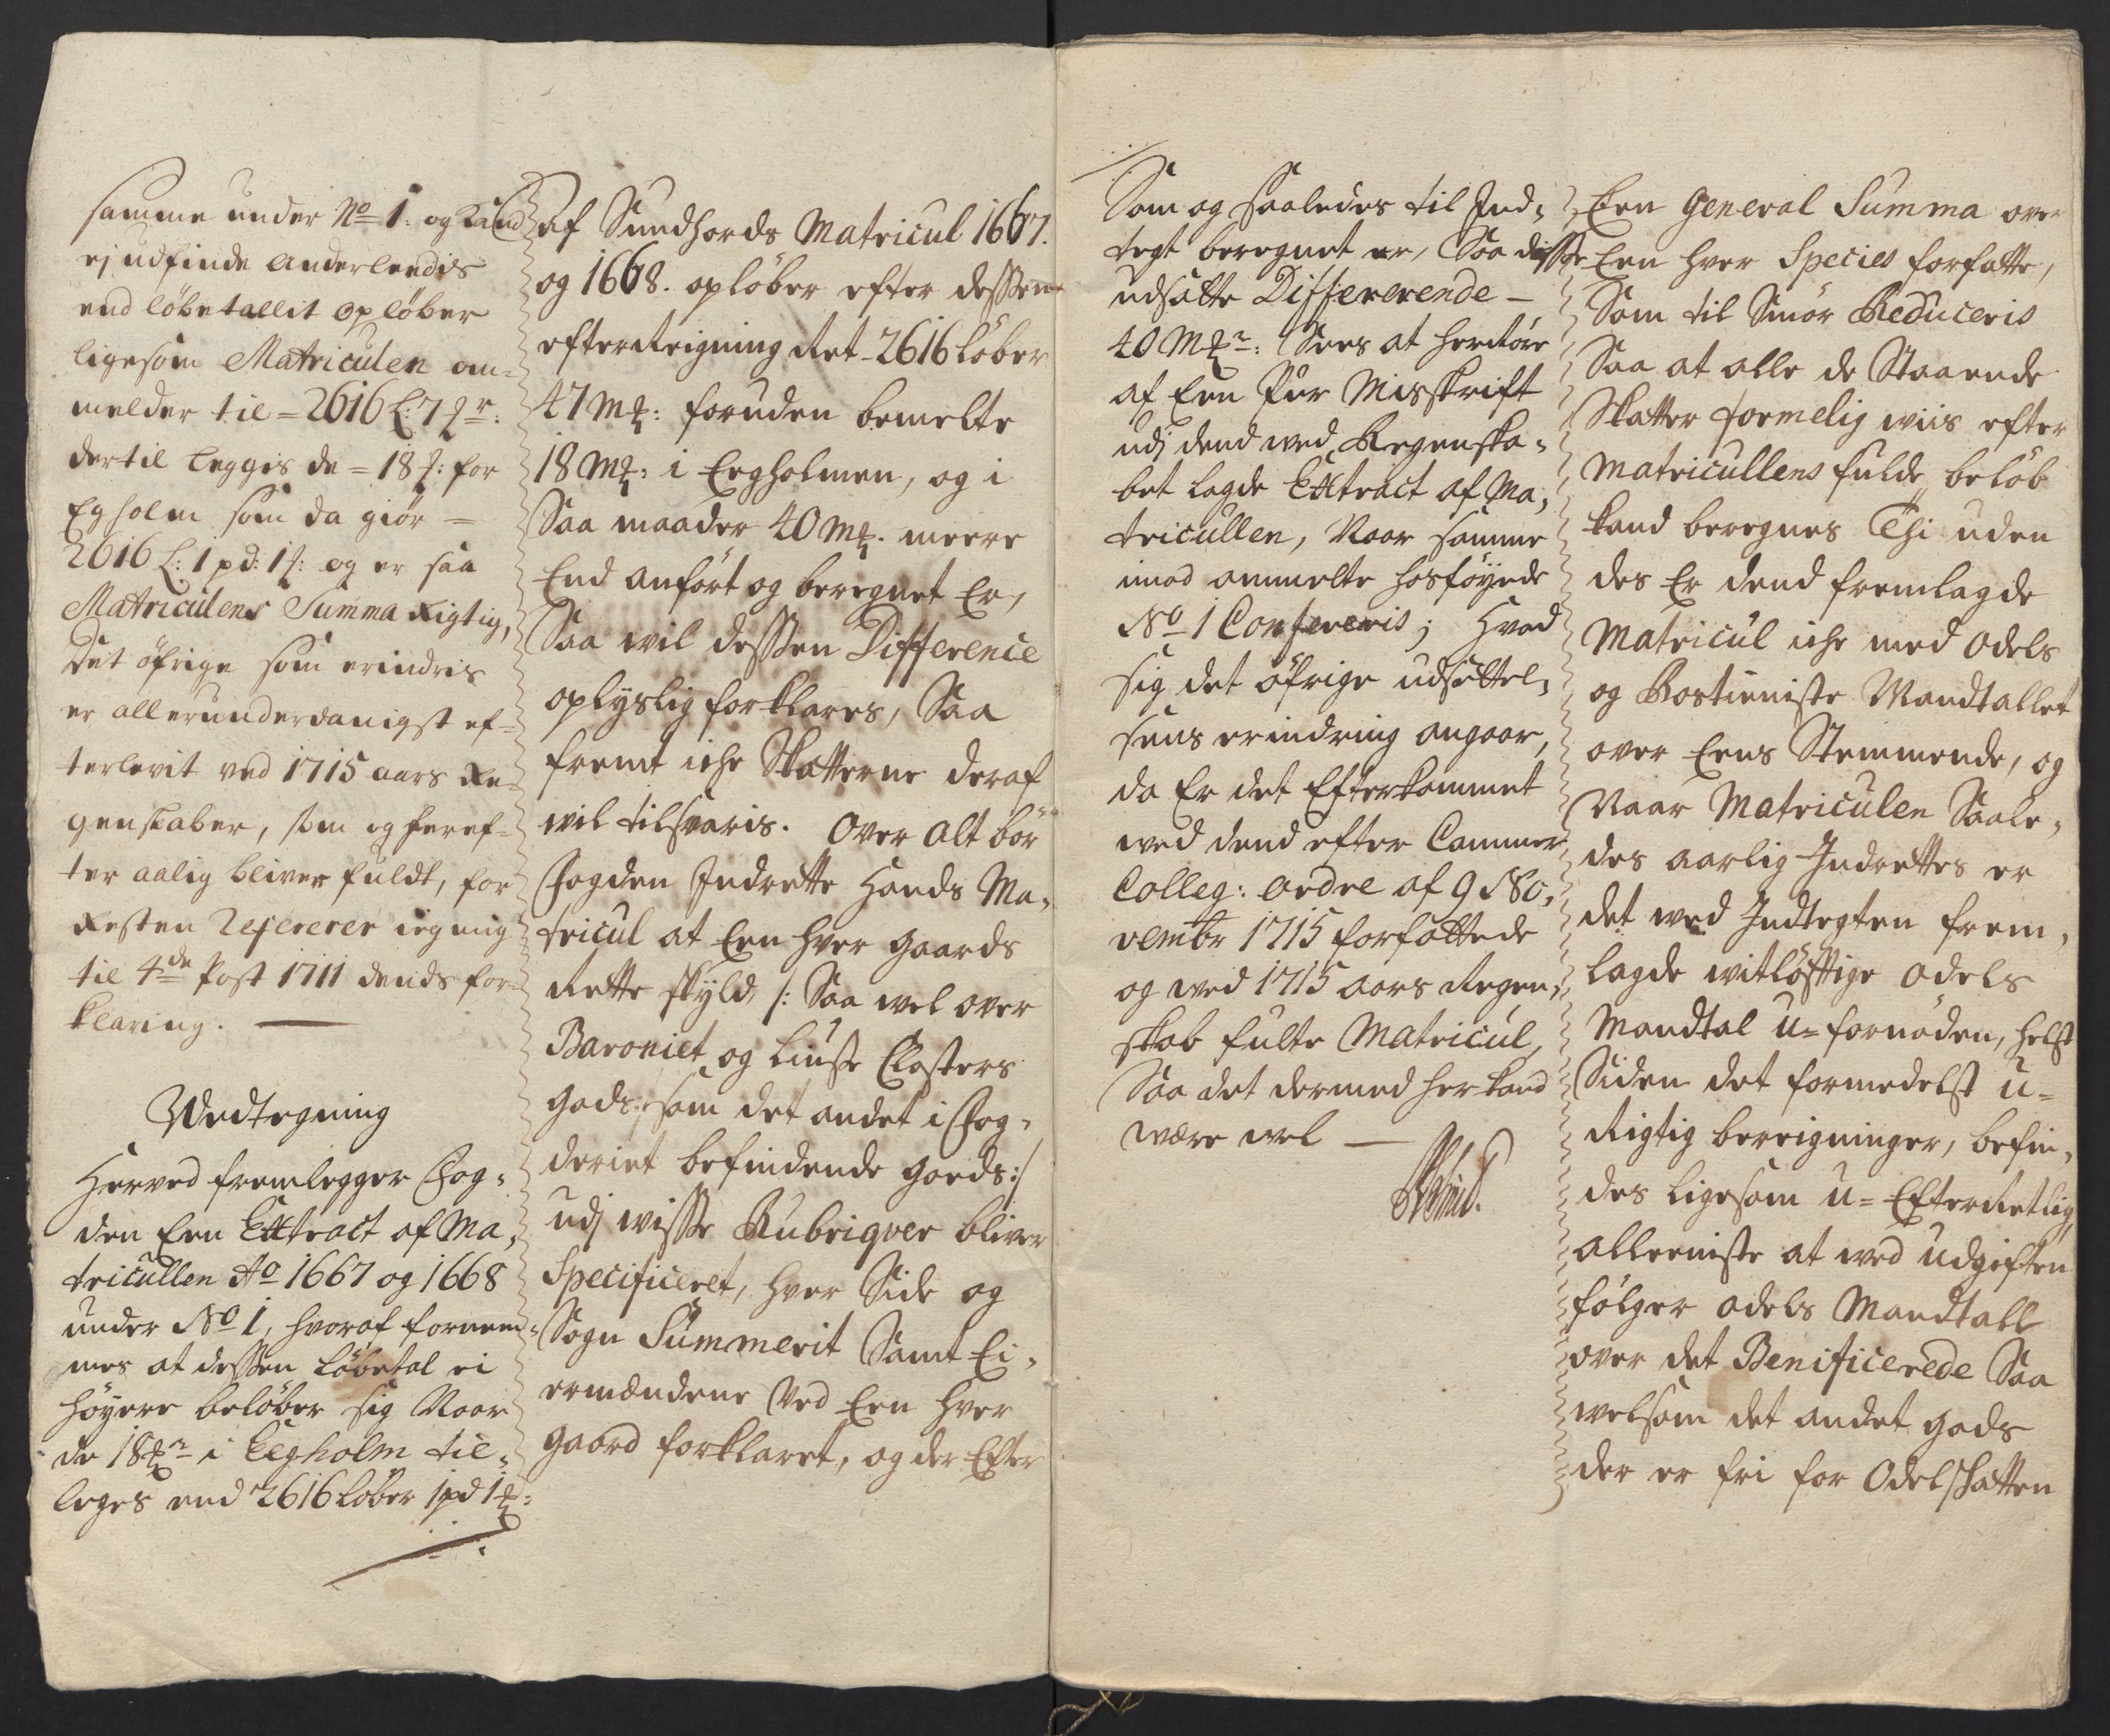 samme under No 1. og Kand
ej udfinde anderleedis
end løbetallit opløber
ligesom Matriculen om-
melder til = 2616 L: 7
dertil legges de = 18 for
Egholm som da giør =
2616 L: 1 pd: 1 og er saa
Matriculens Summa Rigtig,
Det øfrige som erindris
er allerunderdanigst ef-
terlevit ved 1715 aars Re-
genskaber, som og heref-
ter aalig bliver fuldt, for
Resten Refererer ieg mig
til 4de Post 1711 dends for-
klaring. —
Wedtegning
Herved fremlegger Fog-
den Een Extract af Ma-
tricullen Ao 1667 og 1668
under No 1, hvoraf fornem-
mes at dessen Løbetal ei
høyere beløber sig Naar
de 18 i Eegholm til-
leges end 2616 Løber 1 pd 1
af Sundhords Matricul 1667.
og 1668. opløber efter dessen
efterreigning Ret - 2616 Løber
47 mk: foruden bemelte
18 mk: i Eegholmen, og i
Saa maader 40 mk. meere
End anført og beregnet Er,
Saa wil dessen Difference
oplyslig forklares, Saa
fremt iche Skatterne deraf
wil tilsvaris. Over alt bør
Fogden Indrette Hands Ma-
tricul at Een hver gaards
Rette skyld /: Saa wel over
Baroniet og Liuse Closters
gods som det andet i Fog-
deriet befindende goeds :/
udj wisse Rubriqver bliver
Specificeret, hver Side og
Sogn Summerit Samt Ei-
ermændene Ved Een hver
gaard forklaret, og der Efter
Som og saaledes til Ind-
tegt beregnet er, Saa disse
udsatte Differerende —
40 Mk: Sees at herrøre
af Een Pur Misskrift
udj dend ved Regenska-
bet lagde Extract af Ma-
tricullen, Naar samme
imod anmelte hosføyede
No 1 Confereris; Hvad
sig det øfrige udsettel-
sens erindring angaar,
da Er det Efterkommet
ved dend efter Cammer
Colleg: ordre af 9 No-
vembr 1715 forfattede
og wed 1715 aars Regen-
skab fulte Matricul,
Saa det dermed her kand
være wel —
Een General Summa over
Een hver Species forfatte,
Som til Smør Reduceris
Saa at alle de Staaende
Skatter formelig wiis efter
Matricullens fulde beløb
kand beregnes Thi uden
des Er dend fremlagde
Matricul iche med Odels
og Rostieniste Mandtallet
over Eens Stemmende, og
Naar Matriculen Saale-
des aarlig Indrettes er
det wed Indtegten frem-
lagde witløfftige Odels
Mandtal u-fornøden, helst
Siden det formedelst u-
Rigtig bereigninger, befin-
des ligesom u-Efterretlig,
allerniste at wed udgiften
følger odels Mandtall
over det Benificerede Saa
welsom det andet gods
der er fri for Odelskatten